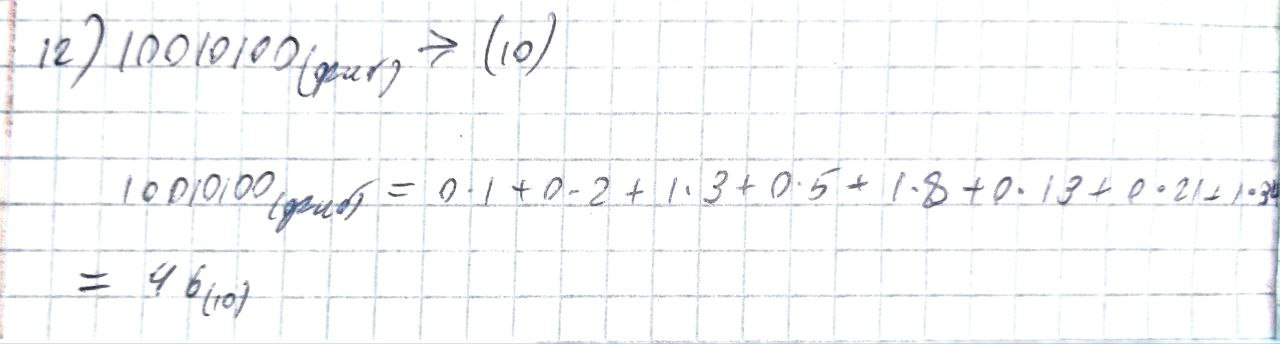 12) 10010100(фиб) → (10)
10010100(фиб) = 0·1+0·2+1·3+0·5+1·8+0·13+0·21+1·34
= 46(10)